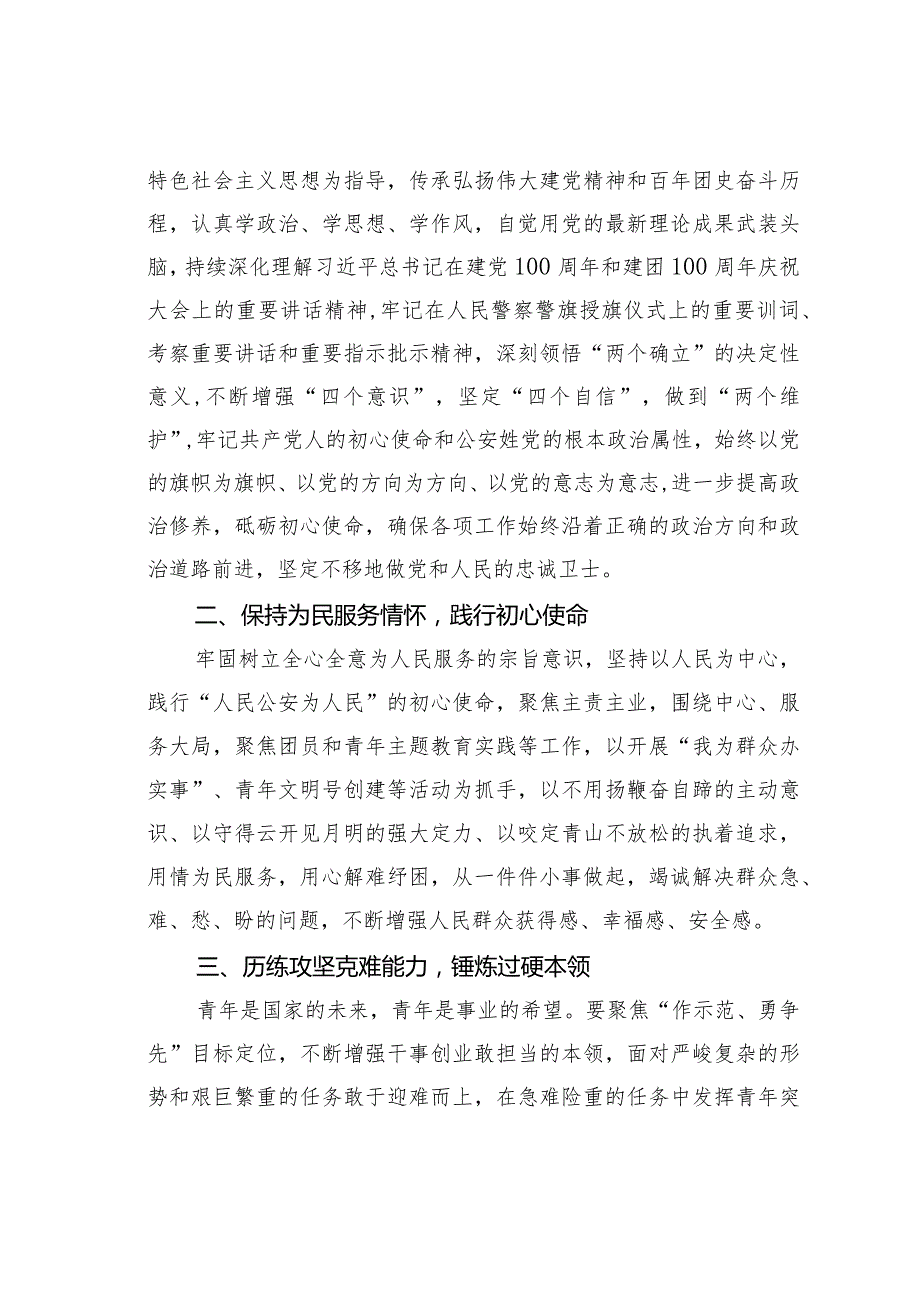 特色社会主义思想为指导，传承弘扬伟大建党精神和百年团史奋斗历
程，认真学政治、学思想、学作风，自觉用党的最新理论成果武装头
脑,持续深化理解习近平总书记在建党 100 周年和建团 100 周年庆祝
大会上的重要讲话精神,牢记在人民警察警旗授旗仪式上的重要训词、
考察重要讲话和重要指示批示精神，深刻领悟“两个确立”的决定性
意义,不断增强“四个意识”，坚定“四个自信”，做到“两个维
护”,牢记共产党人的初心使命和公安姓党的根本政治属性，始终以党
的旗帜为旗帜、以党的方向为方向、以党的意志为意志,进一步提高政
治修养，砥砺初心使命，确保各项工作始终沿着正确的政治方向和政
治道路前进，坚定不移地做党和人民的忠诚卫士。
二、保持为民服务情怀，践行初心使命
牢固树立全心全意为人民服务的宗旨意识，坚持以人民为中心，
践行“人民公安为人民”的初心使命，聚焦主责主业，围绕中心、服
务大局，聚焦团员和青年主题教育实践等工作，以开展“我为群众办
实事”、青年文明号创建等活动为抓手，以不用扬鞭奋自蹄的主动意
识、以守得云开见月明的强大定力、以咬定青山不放松的执着追求，
用情为民服务，用心解难纾困，从一件件小事做起，竭诚解决群众急、
难、愁、盼的问题，不断增强人民群众获得感、幸福感、安全感。
三、历练攻坚克难能力，锤炼过硬本领
青年是国家的未来，青年是事业的希望。要聚焦“作示范、勇争
先”目标定位，不断增强干事创业敢担当的本领，面对严峻复杂的形
势和艰巨繁重的任务敢于迎难而上，在急难险重的任务中发挥青年突